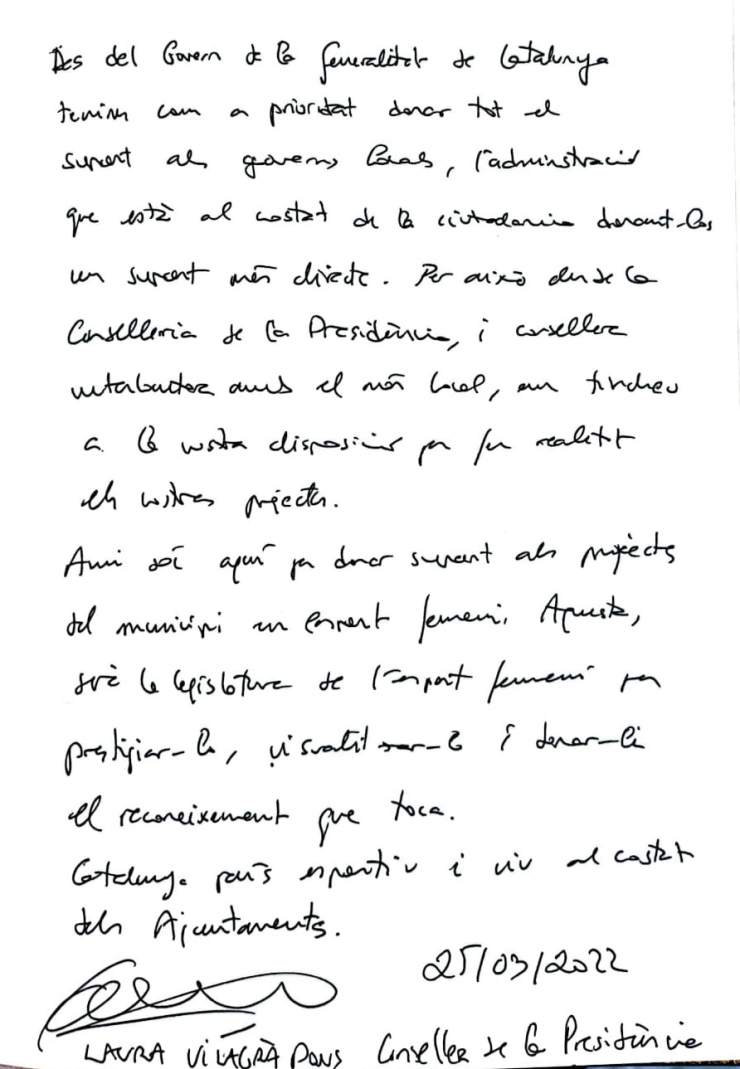 Des del Govern de la Generalitat de Catalunya
tenim com a prioritat donar tot el
suport als governs locals, l'administració
que està al costat de la ciutadania donant-los
un suport més directe. Per això des de la
Conselleria de la Presidència, i consellera
amb el món local, em tindreu
a la vostra disposició per fer realitat
els vostres projectes.
Avui sóc aquí per donar suport als projectes
del municipi en esport femení. Aquesta,
serà la legislatura de l'esport femení per
prestigiar-lo, visualitzar-lo i donar-li
el reconeixement que toca.
Catalunya país esportiu i viu al costat
dels Ajuntaments.
25/03/2022
LAURA VILAGRÀ PONS Consellera de la Presidència